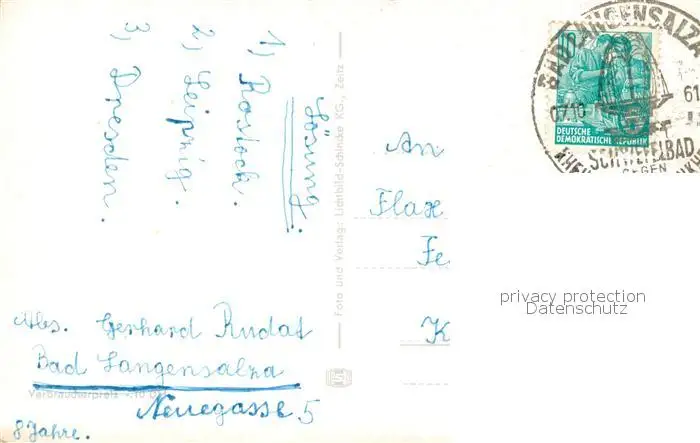 Lösung:
1) Rostock.
2) Leipzig.
3) Dresden.
Abs. Gerhard Rudat
Bad Langensalza
Neuegasse 5
8 Jahre.
Verbraucherpreis -.10 DM
Foto und Verlag: Lichtbild-Schincke KG., Zeitz
An
Flax
Fe
K
10
DEUTSCHE
DEMOKRATISCHE REPUBLIK
BAD LANGENSALZA
07.10
61
SCHWEFELBAD
GEGEN
privacy protection
Datenschutz